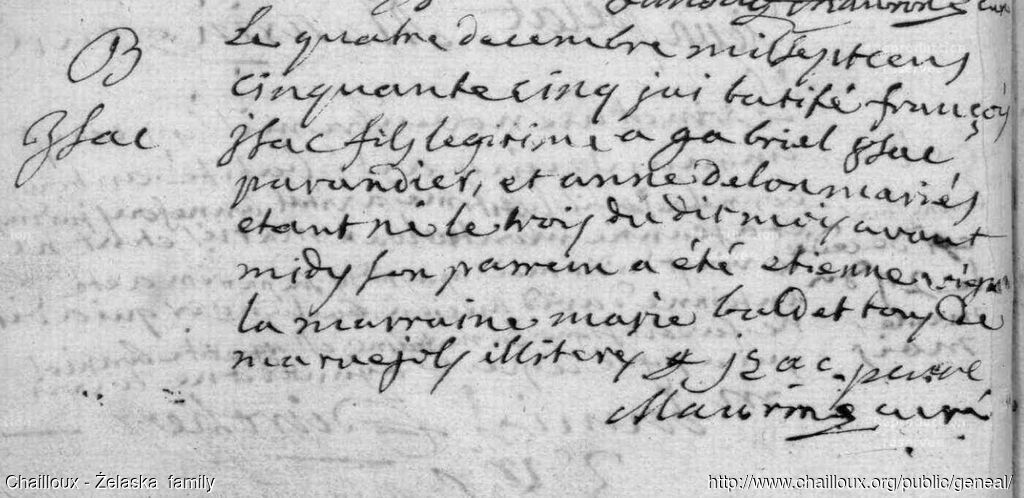 B
Jsac
Le quatre decembre mil sept cens
cinquante cinq jai batisé françois
jsac fils legitime a gabriel jsac
parandier, et anne delon mariés
etant né le trois du dit mois avant
midy son parrein a été etienne
la marraine marie baldet tous de
maruejols illiteres jzac pere
curé
Chailloux - Żelaska family
http://www.chailloux.org/public/geneal/